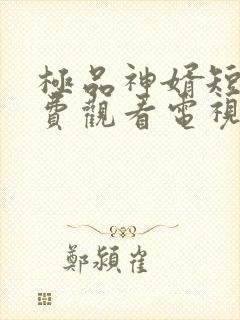 極品神婿短
費觀看電視
鄭潁崔